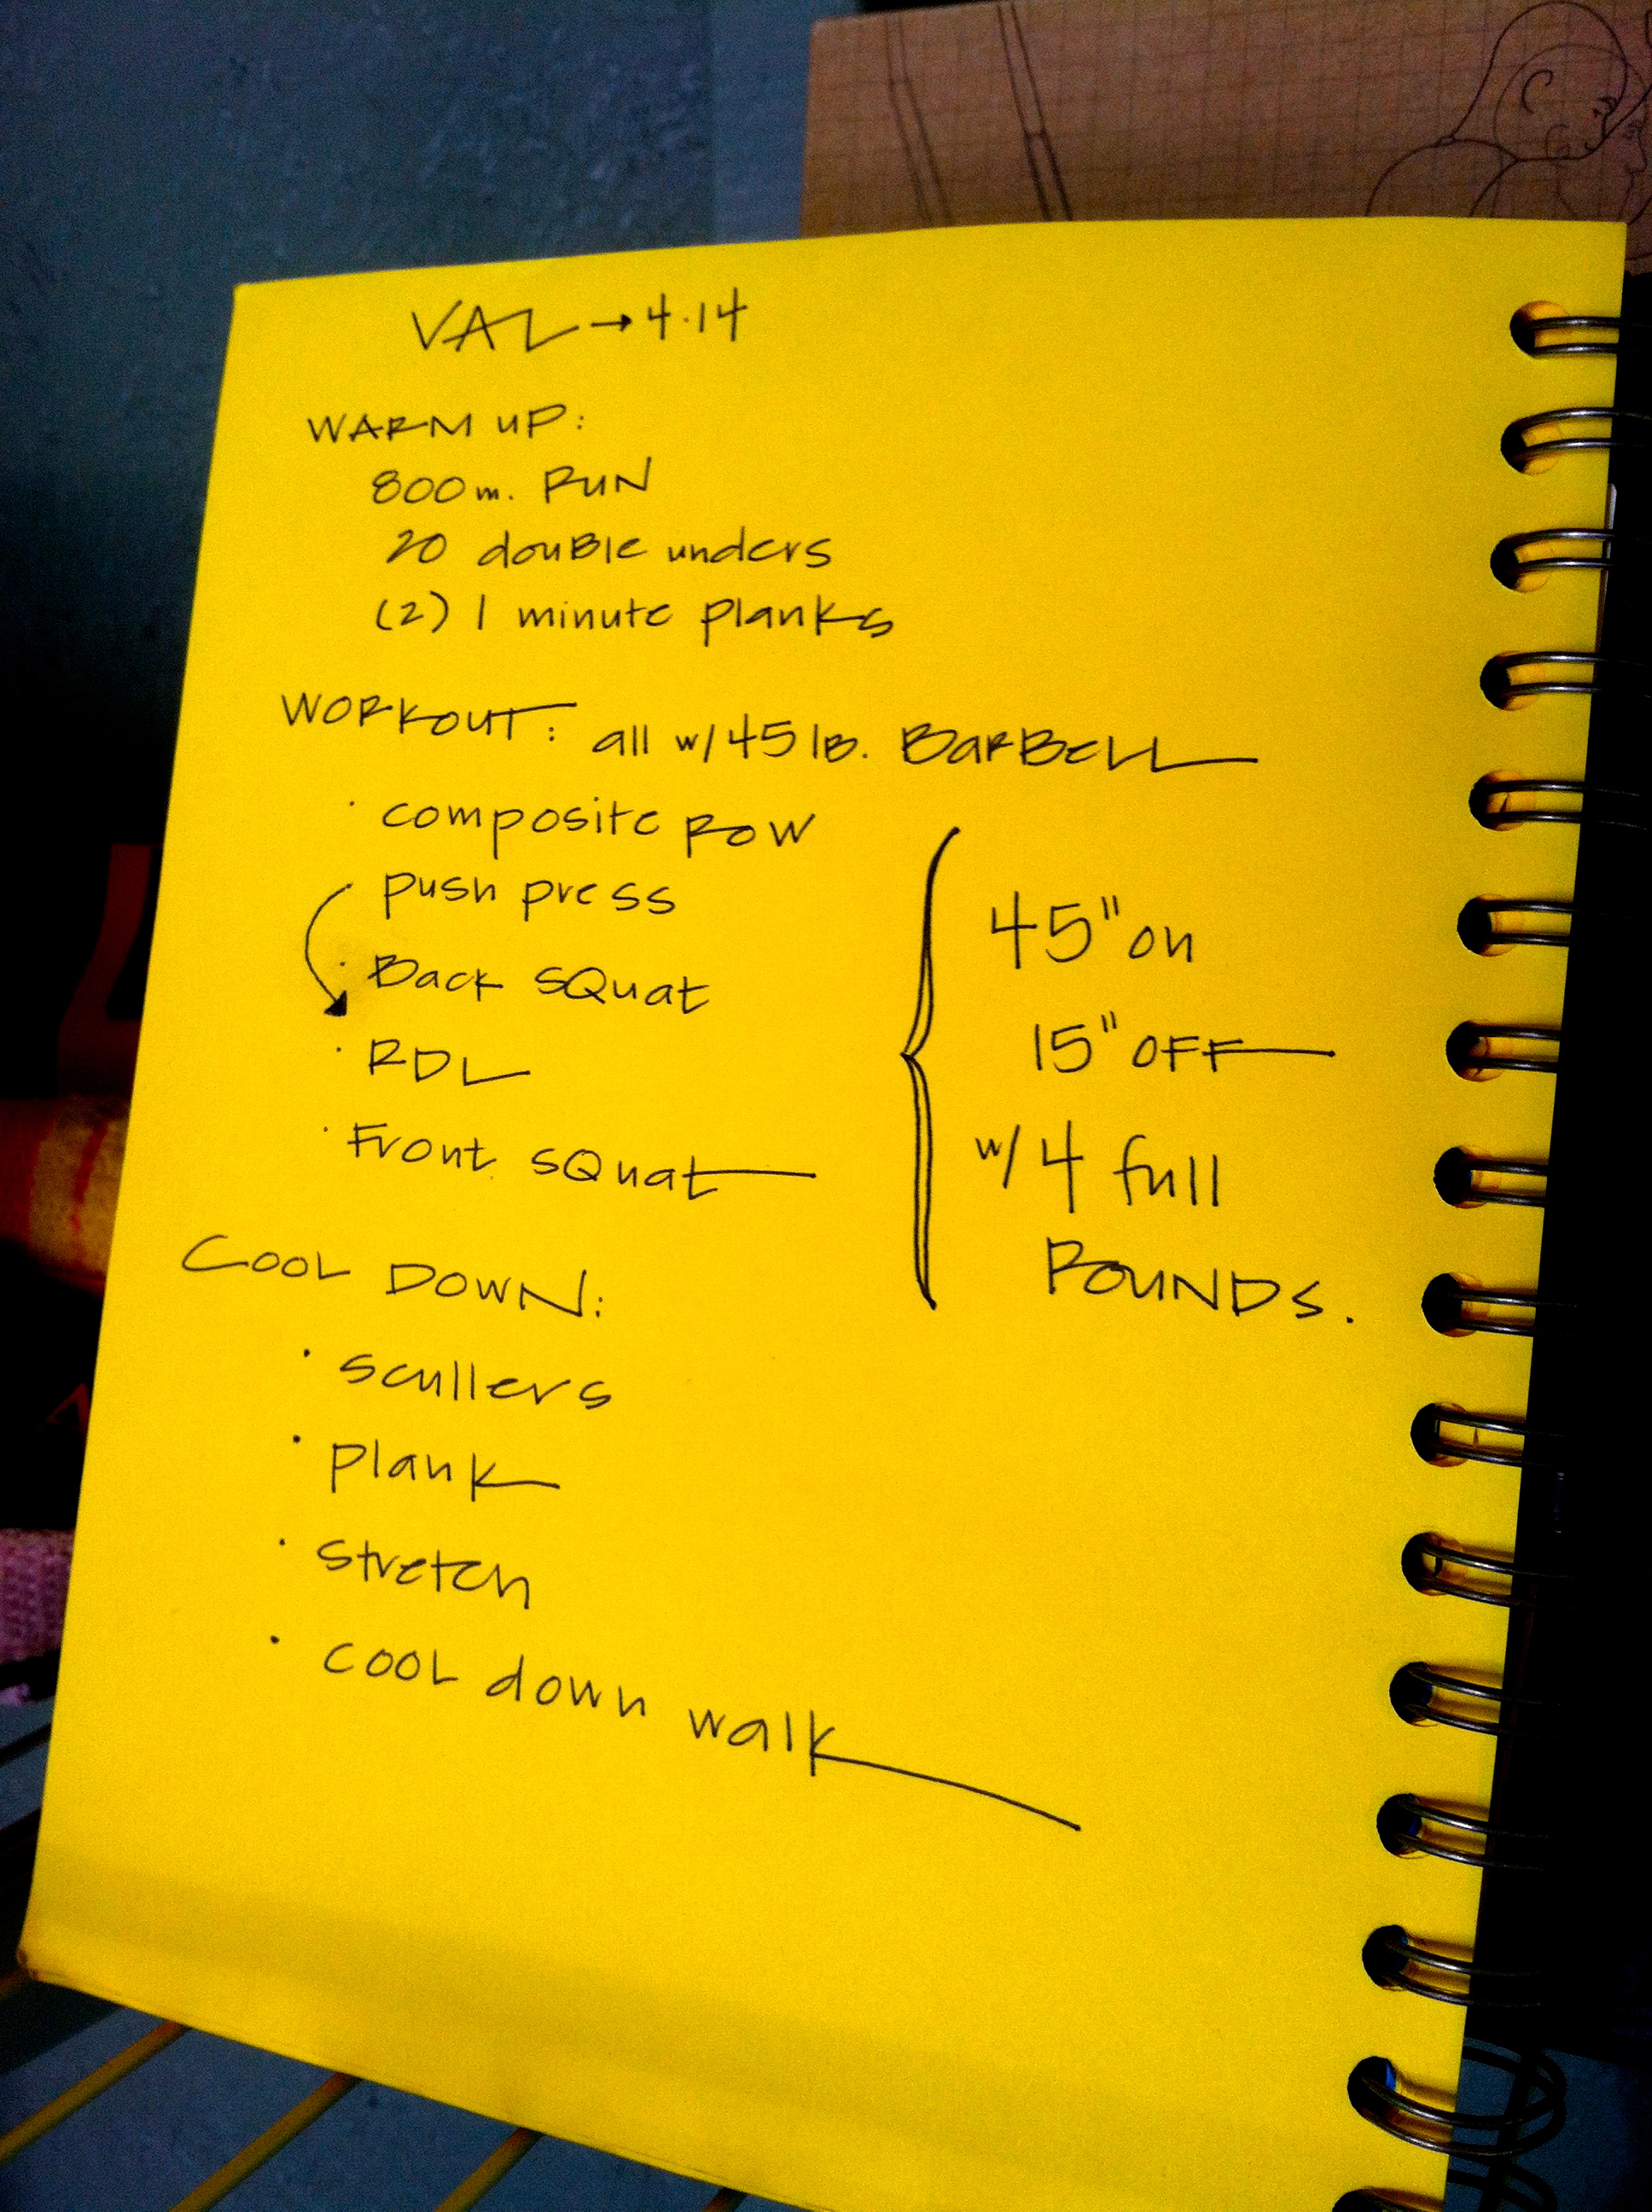 VAL → 4.14
WARM UP:
800 m. RUN
20 double unders
(2) 1 minute planks
WORKOUT: all w/ 45 lb. BarBell
· composite Row
push press
· Back squat
· RDL
· Front squat
45" on
15" OFF
w/ 4 full
ROUNDS.
COOL DOWN:
· scullers
· plank
· stretch
· cool down walk